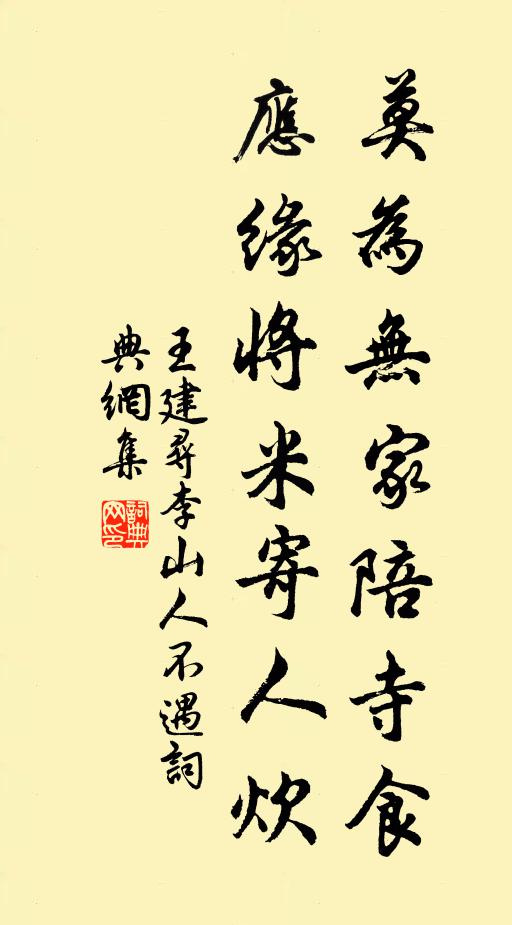 莫為無家陪寺食
應緣將米寄人炊
王建尋李山人不遇詞
典網集
詞典
网印